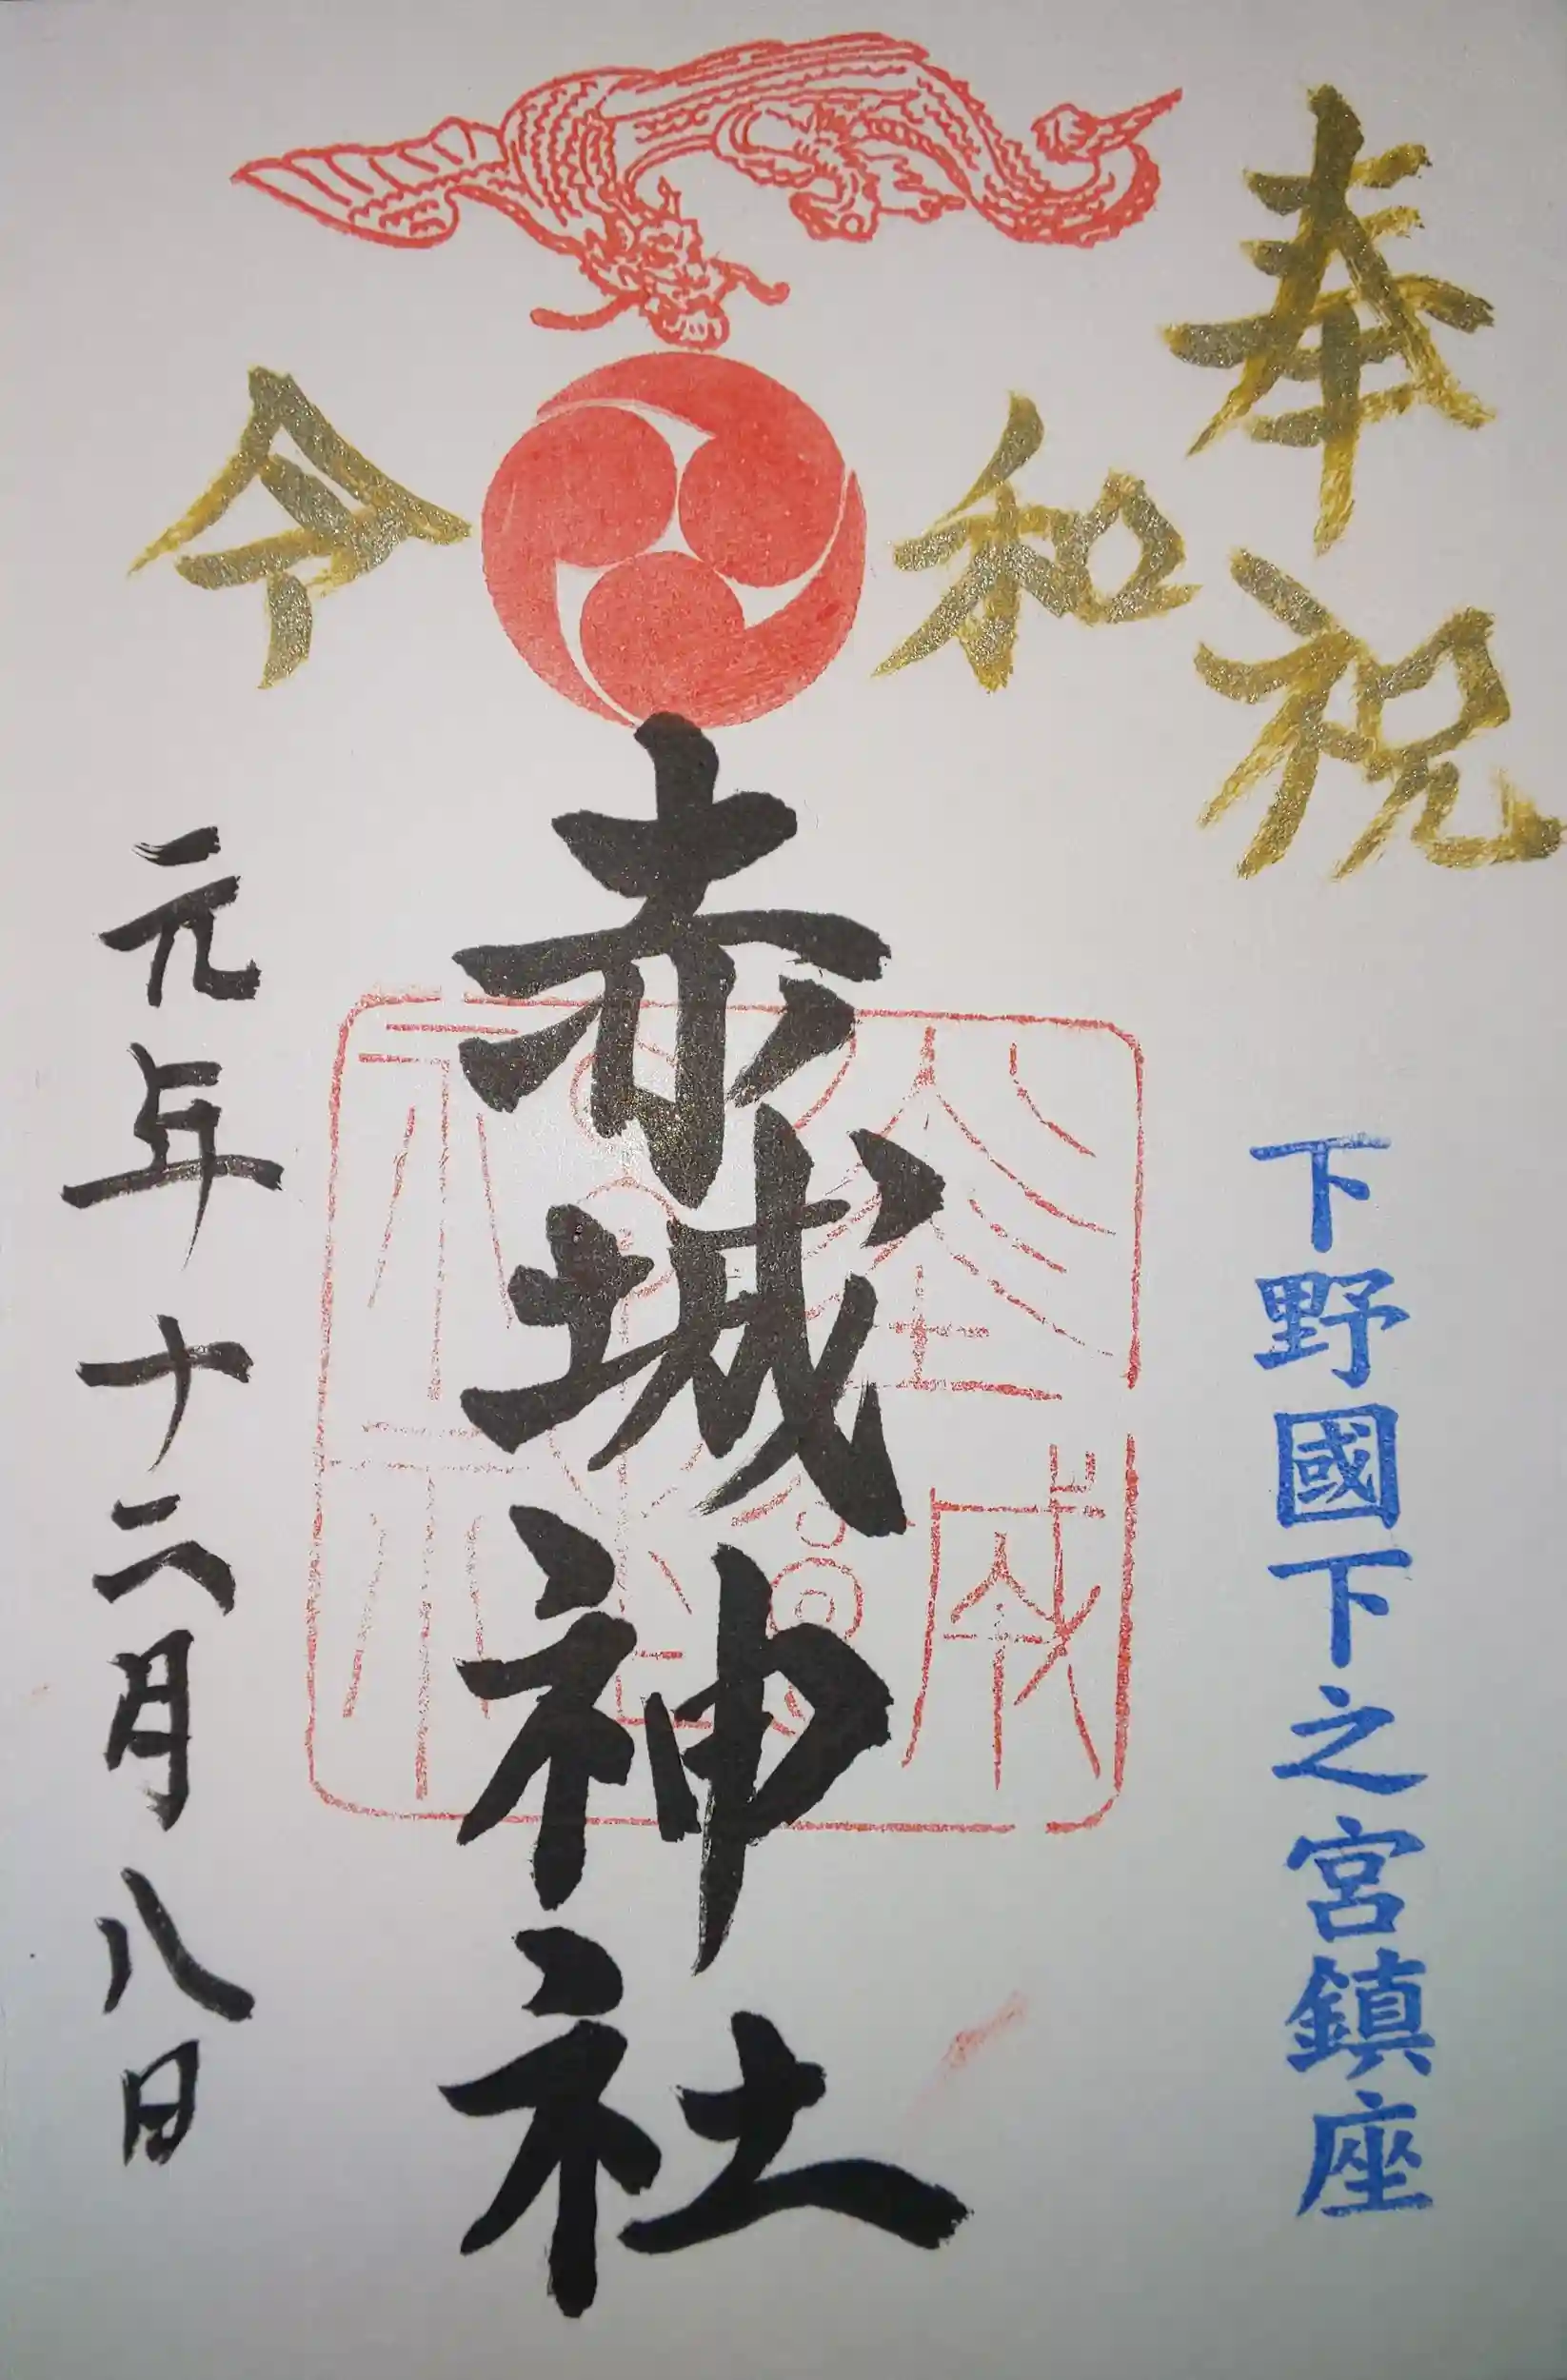 奉祝
下野國下之宮鎮座
令和
赤城神社
元年十二月八日